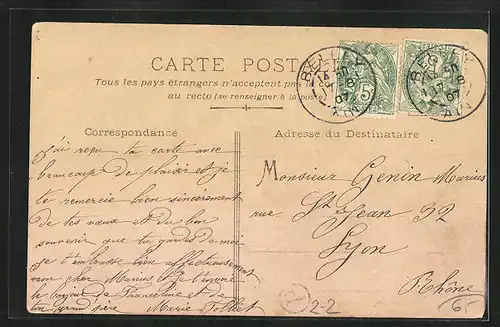 CARTE POSTALE
Tous les pays étrangers n'acceptent pas
au recto (se renseigner à la poste)
BELLEY
AIN
5
BELLEY
AIN
Correspondance
Adresse du Destinataire
J'ai reçu ta carte avec
beaucoup de plaisir et je
te remercie bien sincèrement
de tes vœux et du bon
souvenir que tu gardes de moi
je t'embrasse bien affectueusement
mon cher Marius je t'envoie
le bonjour de Franceline et de
ton grand père Marie
Monsieur Genin Marius
rue St Jean 32
Lyon
Rhône
2-2
6.-